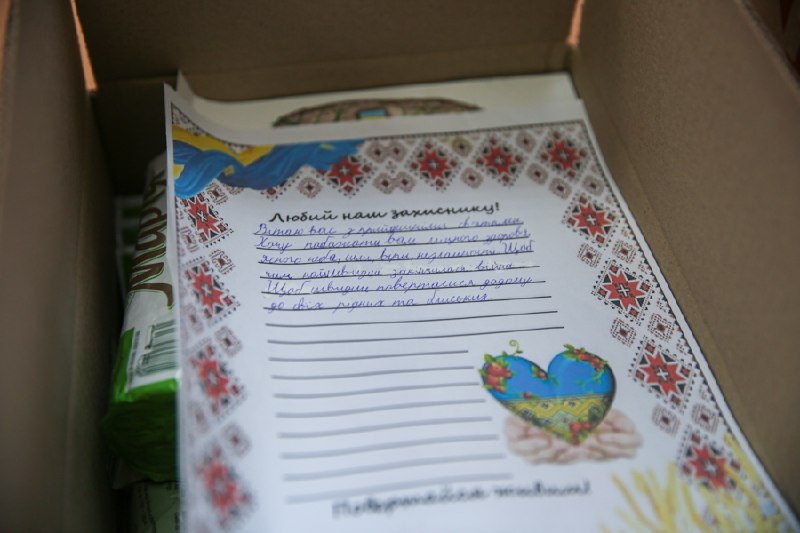 Любий наш захиснику!
Вітаю вас з прийдешніми святами
Хочу побажати вам міцного здоровя
ясного неба, миру,
Щоб
чим найшвидше закінчилась війна
Щоб швидше поверталися додому
до своїх рідних та близьких
Повертайся живим!
Марія